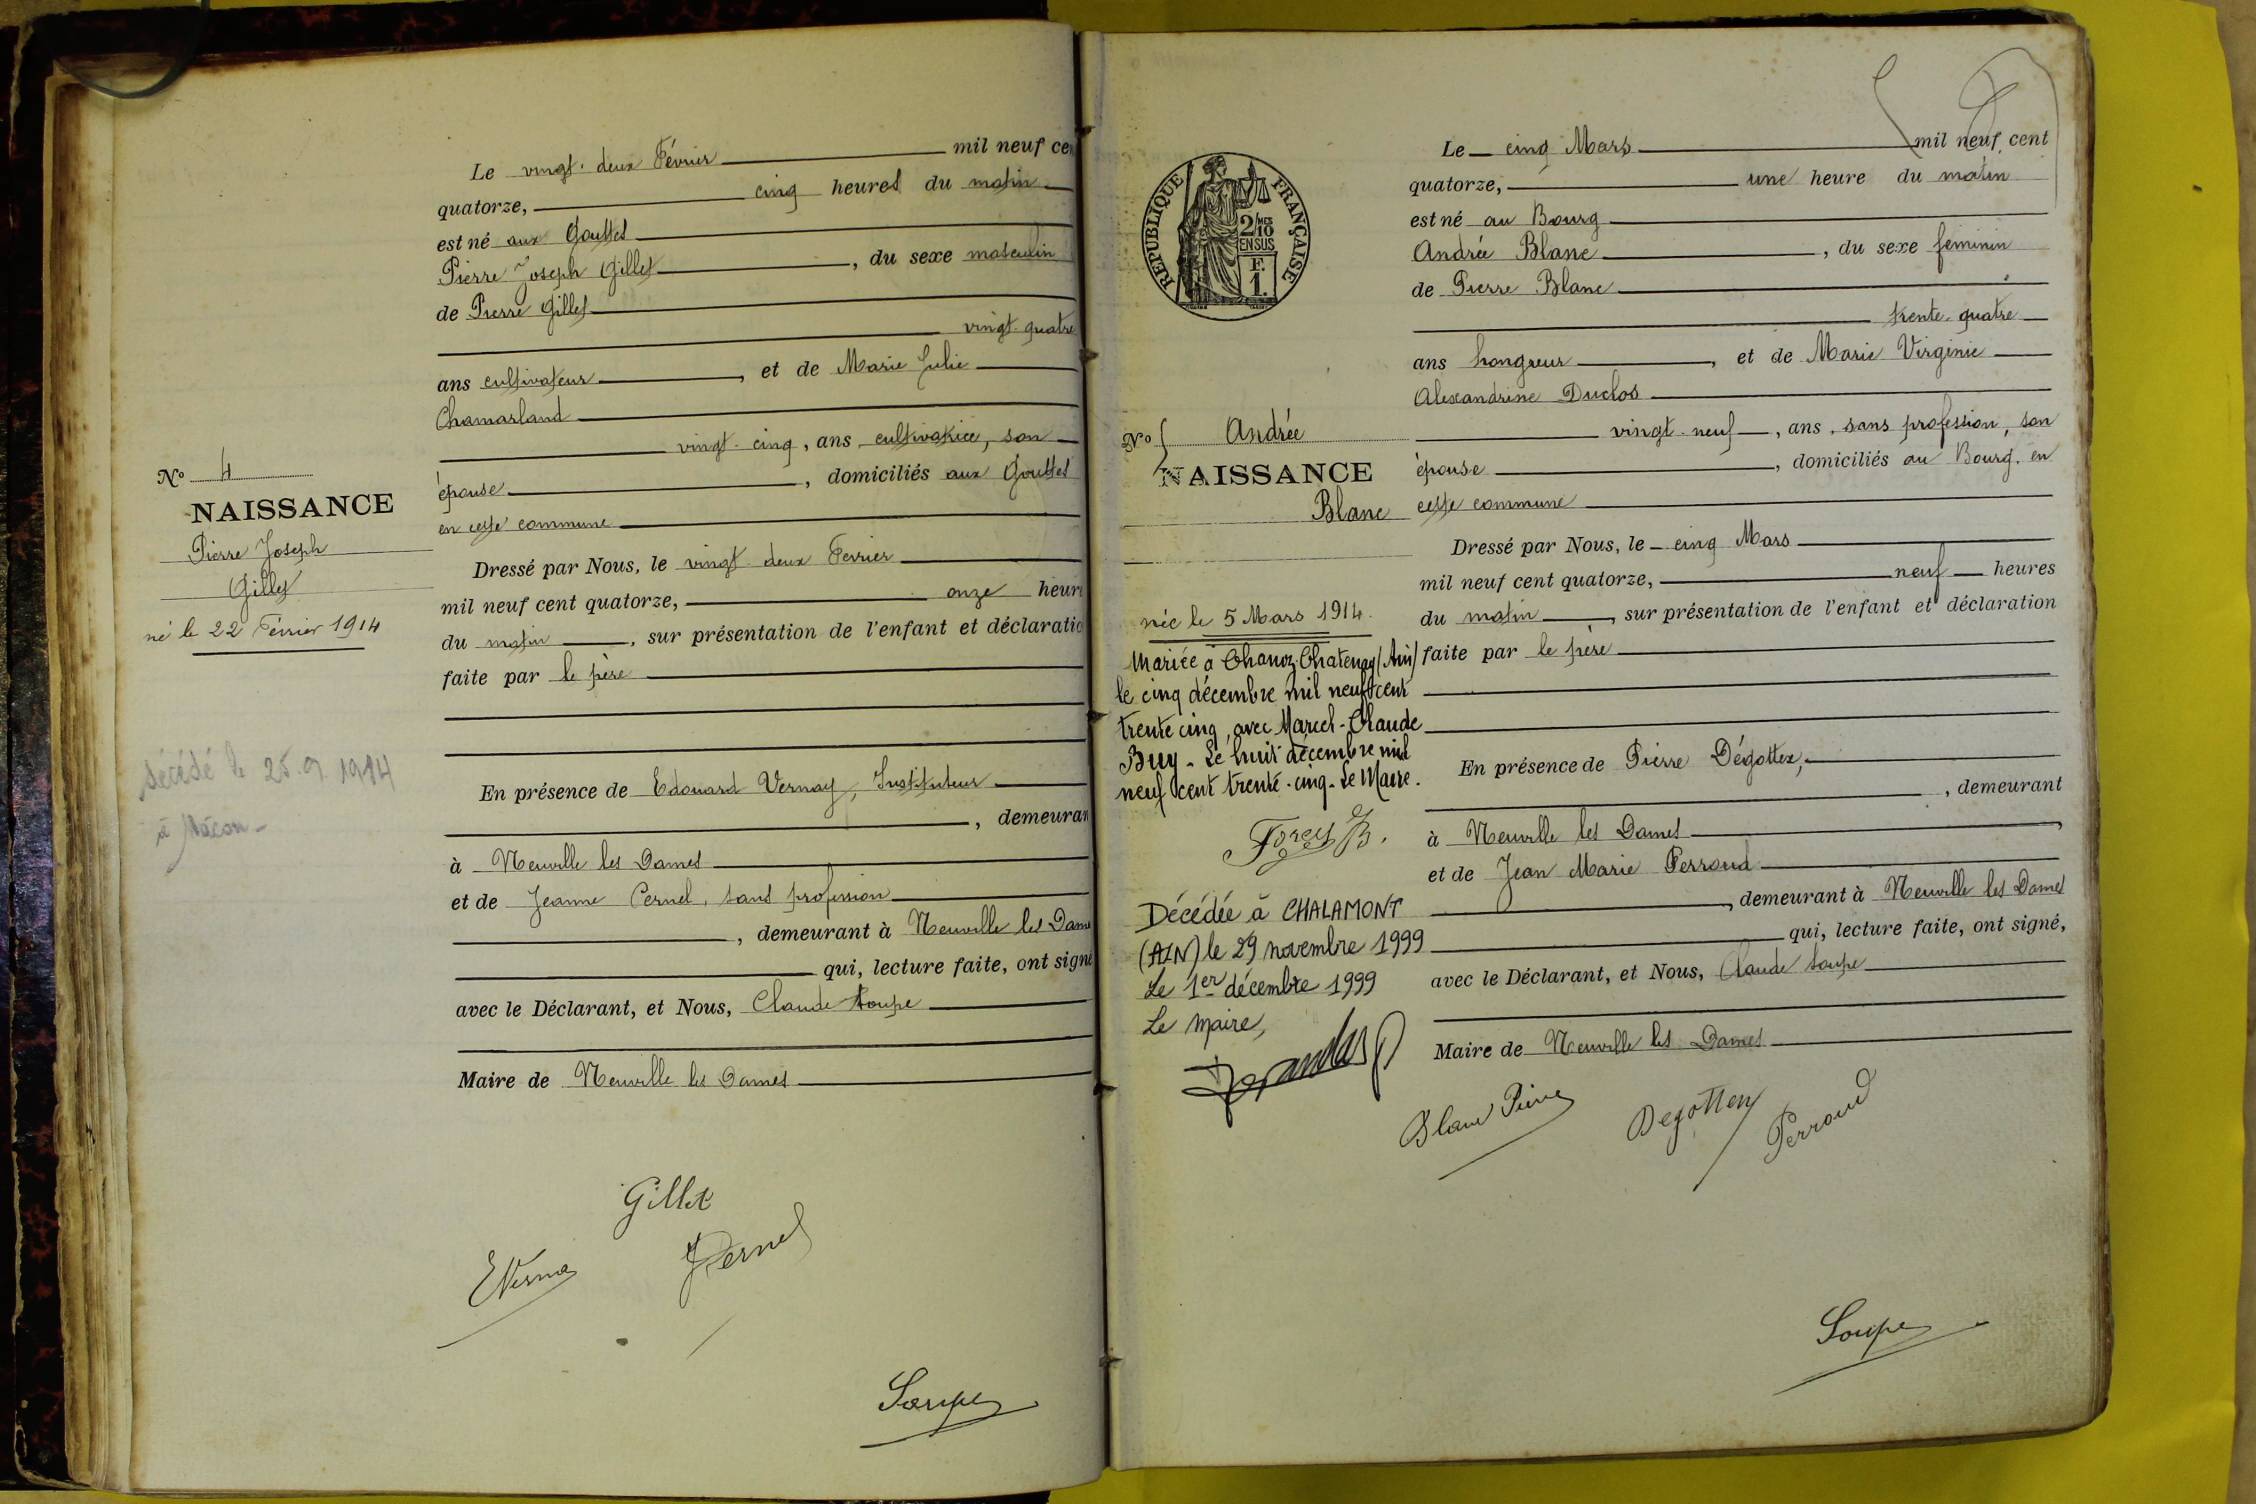 Le vingt-deux Février mil neuf cen
quatorze, cinq heures du matin
est né aux Gouttes
Pierre Joseph Gilles, du sexe masculin
de Pierre Gilles
vingt-quatre
ans cultivateur, et de Marie Julie
Chamarland
vingt-cinq, ans cultivatrice, son
épouse, domiciliés aux Gouttes
en cette commune
N° 4
NAISSANCE
Pierre Joseph
Gilles
né le 22 Février 1914
décédé le 25.9.1914
à Mâcon -
Dressé par Nous, le vingt-deux Fevrier
mil neuf cent quatorze, onze heure
du matin, sur présentation de l'enfant et déclaratio
faite par le père
En présence de Edouard Vernay, Instituteur
, demeuran
à Neuville les Dames
et de Jeanne Pernel, sans profession
, demeurant à Neuville les Dame
qui, lecture faite, ont signé
avec le Déclarant, et Nous, Claude Soupe
Maire de Neuville les Dames
Gillet
Soupe
RÉPUBLIQUE FRANÇAISE
2/10 MES
EN SUS
F.
1.
Le cinq Mars mil neuf cent
quatorze, une heure du matin
est né au Bourg
Andrée Blanc, du sexe féminin
de Pierre Blanc
trente-quatre
ans hongreur, et de Marie Virginie
Alexandrine Duclos
vingt-neuf, ans, sans profession, son
épouse, domiciliés au Bourg, en
cette commune
N° 5 Andrée
NAISSANCE
Blanc
née le 5 Mars 1914.
Mariée à Chanoz-Chatenay (Ain)
le cinq décembre mil neuf cent
trente cinq, avec Marcel-Claude
Buy - Le huit décembre mil
neuf cent trente-cinq - Le Maire.
Décédée à CHALAMONT
(AIN) le 29 novembre 1999
Le 1er décembre 1999
Le Maire,
Dressé par Nous, le cinq Mars
mil neuf cent quatorze, neuf heures
du matin, sur présentation de l'enfant et déclaration
faite par le père
En présence de Pierre Dégottex,
, demeurant
à Neuville les Dames
et de Jean Marie Perroud
, demeurant à Neuville les Dames
qui, lecture faite, ont signé,
avec le Déclarant, et Nous, Claude Soupe
Maire de Neuville les Dames
Blanc Pierre
Degottex
Perroud
Soupe